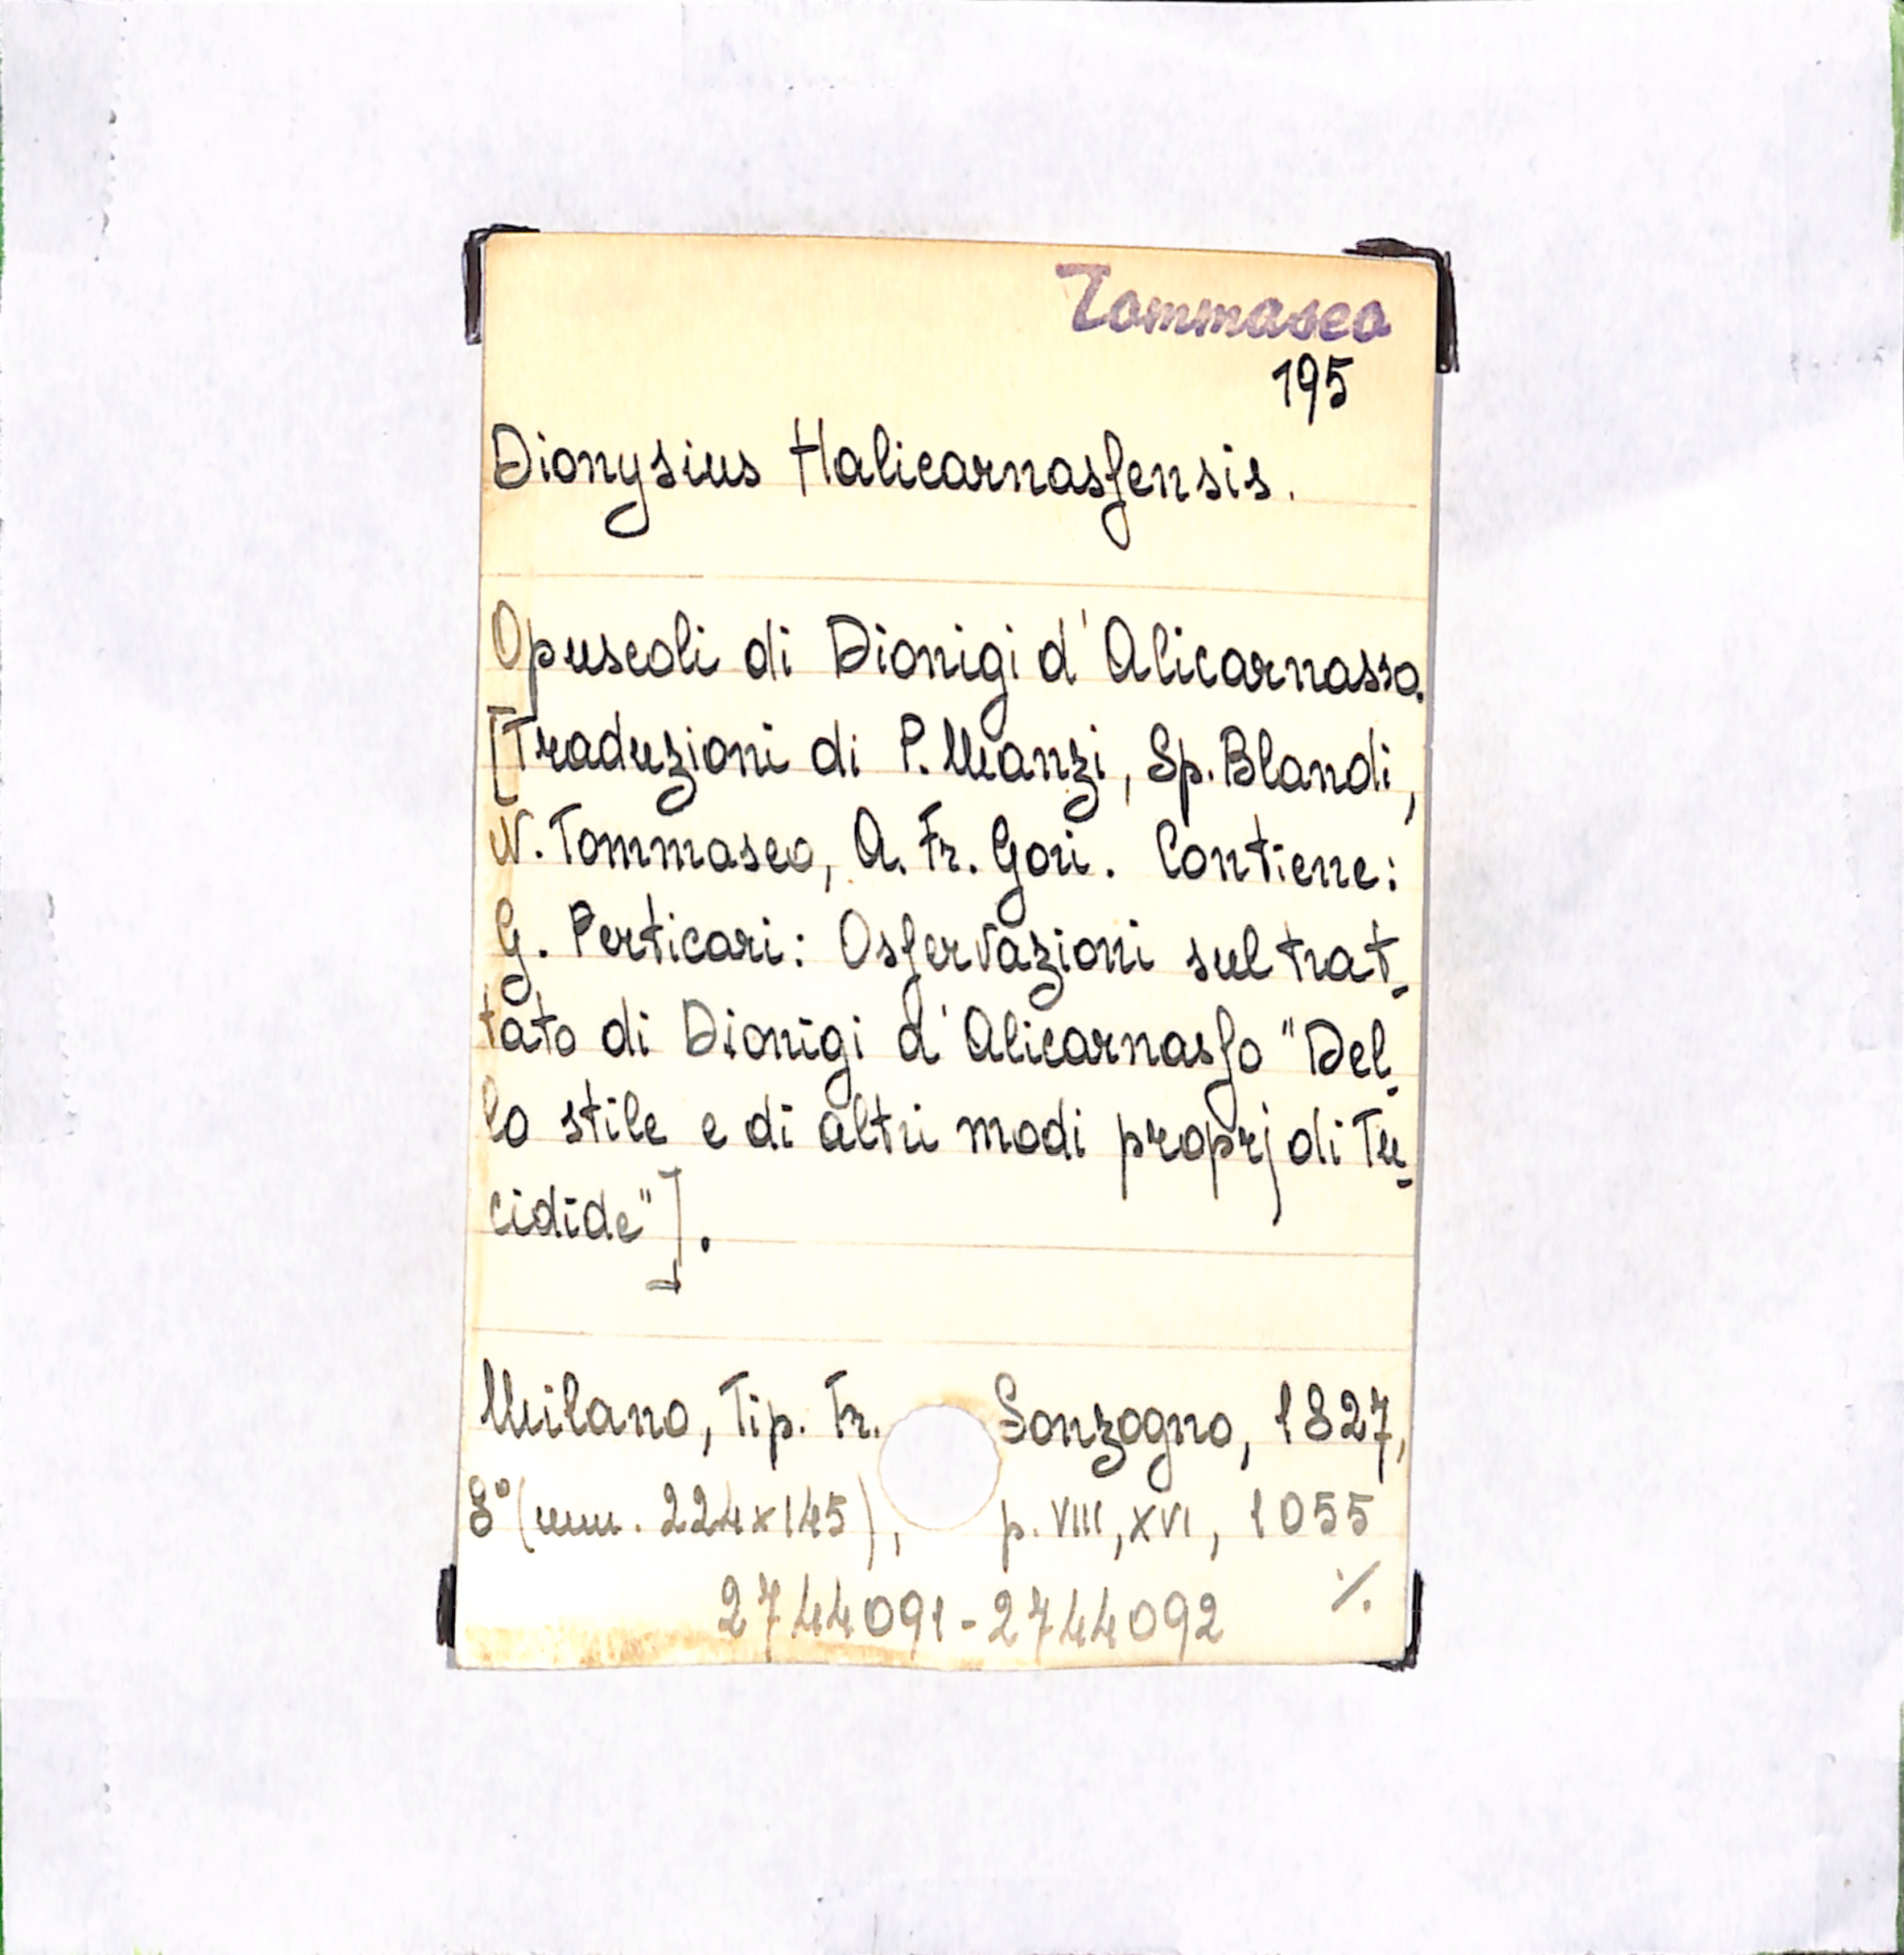 Tommaseo
195
Dionysius Halicarnassensis.
Opuscoli di Dionigi d'Alicarnasso.
[Traduzioni di P. Manzi, Sp. Blandi,
N. Tommaseo, A. Fr. Gori. Contiene:
G. Perticari: Osservazioni sul trat-
tato di Dionigi d'Alicarnasso "Del-
lo stile e di altri modi proprj di Tu-
cidide"].
Milano, Tip. Fr. Sonzogno, 1827,
8° (mm. 224x145), p. VIII, XVI, 1055
2744091-2744092 ./.